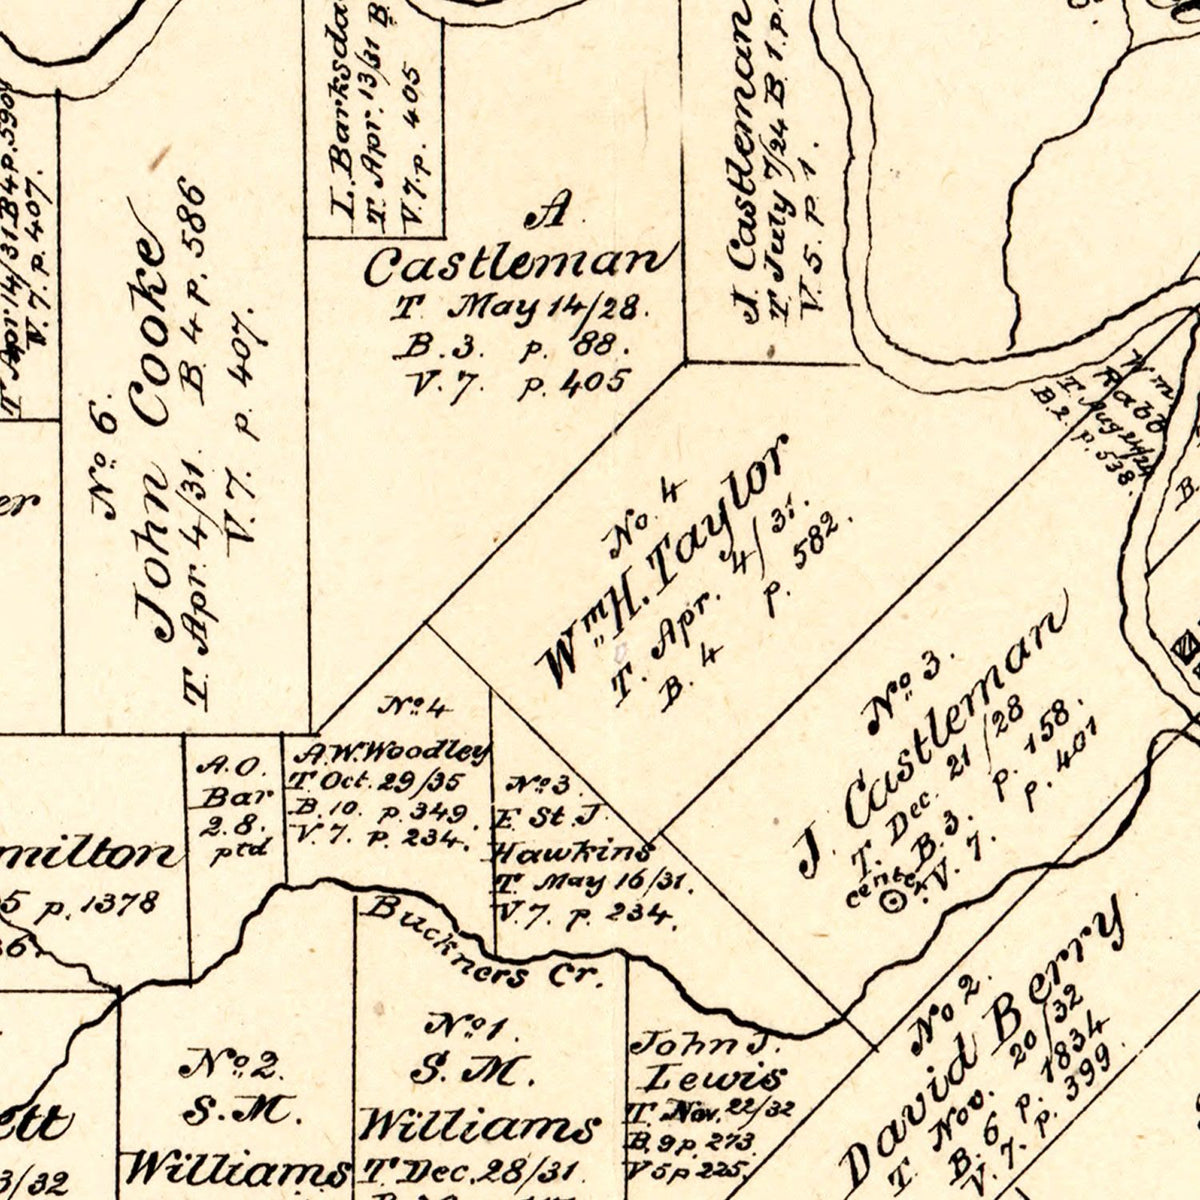 T Apr 14/31 B 4 p. 590
V. 7. p. 407.
No. 6.
John Cooke
T Apr. 4/31. B 4 p. 586
V. 7. p. 407.
L. Barksda
T Apr. 13/31 B
V. 7. p. 405
A
Castleman
T May 14/28.
B. 3. p. 88.
V. 7. p. 405
J. Castleman
T July 7/24 B 1. p.
V. 5. P. 1.
Wm
Rabb
T. Aug 24/24
B. 2. p. 538.
B.
er
No. 4
Wm H. Taylor
T. Apr. 4/31.
B. 4 p. 582.
No 3.
J. Castleman
T. Dec. 21/28
B. 3. p. 158.
V. 7. p. 401
center
No. 4
A. W. Woodley
T. Oct. 29/35
B. 10. p. 349.
V. 7. p. 234.
A. O.
Bar
2. 8.
ptd
No. 3.
E St. J.
Hawkins
T. May 16/31.
V. 7. p. 234.
milton
5 p. 1378
36
Buckners Cr.
No. 2.
S. M.
Williams
No. 1.
S. M.
Williams
T Dec. 28/31
John J.
Lewis
T. Nov. 22/32
B. 9 p. 273
V 5 p 225.
No 2.
David Berry
T. Nov. 20/32
B. 6 p. 1834
V. 7. p. 399.
ett
3/32